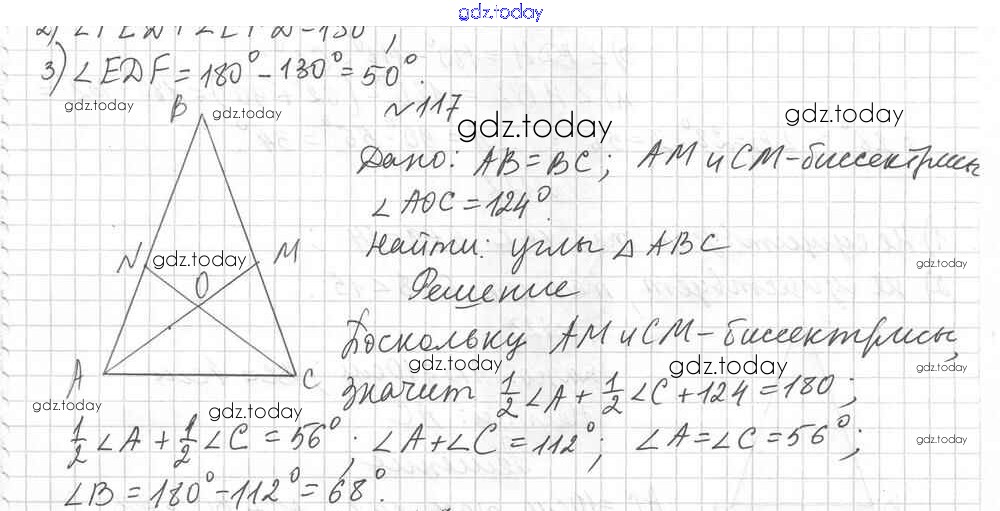 gdz.today
3) ∠EDF = 180° - 130° = 50°.
gdz.today
B
gdz.today
№117
gdz.today
gdz.today
Дано: AB = BC; AM и CM - биссектрисы
∠AOC = 124°.
Найти: углы △ABC
N
gdz.today
M
gdz.today
O
Решение
Поскольку AM и CM - биссектрисы,
A
C
gdz.today
gdz.today
gdz.today
значит 1/2 ∠A + 1/2 ∠C + 124 = 180;
gdz.today
gdz.today
1/2 ∠A + 1/2 ∠C = 56°; ∠A + ∠C = 112°; ∠A = ∠C = 56°;
gdz.today
∠B = 180° - 112° = 68°.